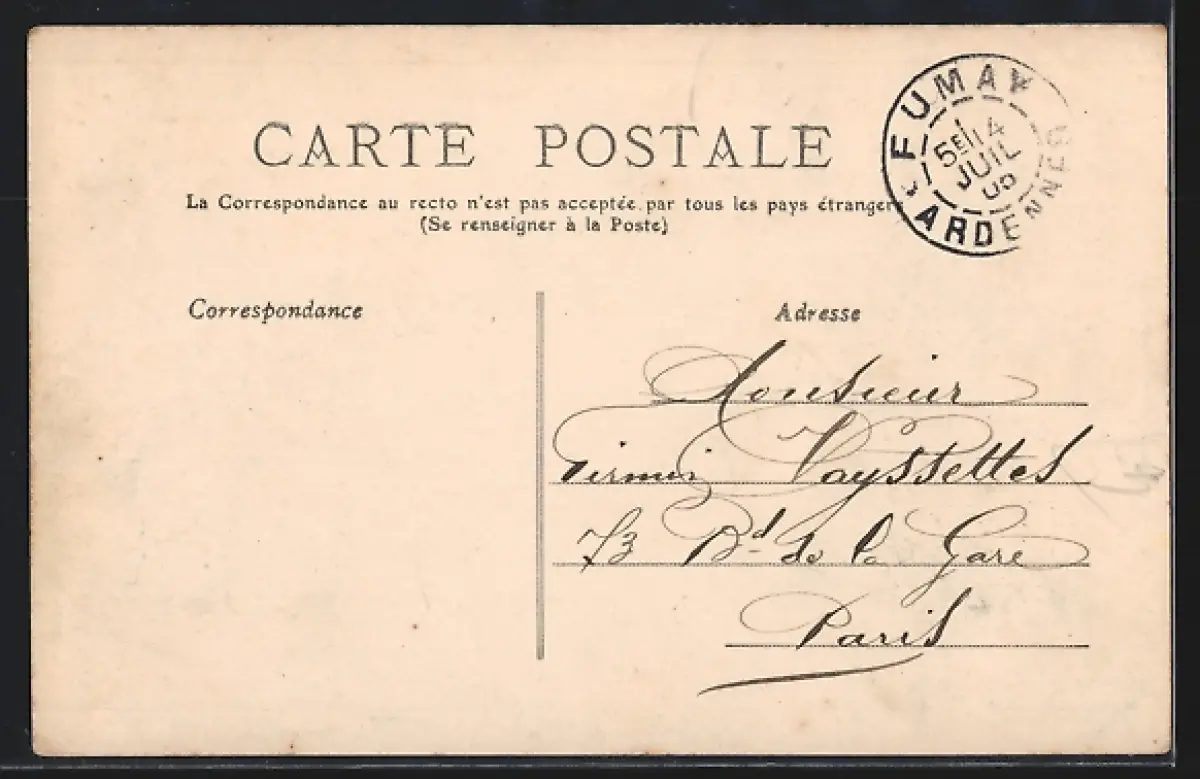 CARTE POSTALE
La Correspondance au recto n'est pas acceptée par tous les pays étrangers
(Se renseigner à la Poste)
FUMAY
5E 14
JUIL
ARDENNES
Correspondance
Adresse
Monsieur
Firmin Vayssettes
73 Bd de la Gare
Paris